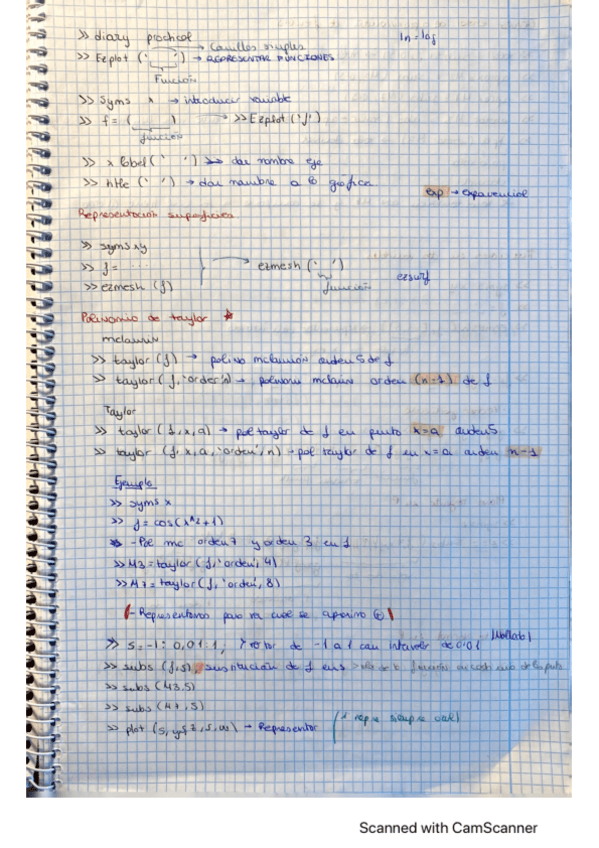 >> diary procheol
ln = log
>> Ezplot (' ') → REPRESENTAR FUNCIONES
→ Comillas simples
Función
>> Syms x → introducir variable
>> f = ( ) → >> Ezplot ('f')
función
>> x label (' ') >> dar nombre eje
>> title (' ') → dar nombre a la gráfica
exp → exponencial
Representación superficies
>> syms xy
>> f = ...
ezmesh (' ')
función
ezsurf
>> ezmesh (f)
Polinomio de taylor *
mclaurin
>> taylor (f) → polino mclaurin orden 5 de f
>> taylor (f, 'order'n) → polinomi mclaurn orden (n-1) de f
Taylor
>> taylor (f, x, a) → pol taylor de f en punto x=a orden 5
>> taylor (f, x, a, 'orden', n) → pol taylor de f en x=a orden n-1
Ejemplo
>> syms x
>> f = cos(x^2+1)
- Pol mc orden 7 y orden 3 en f
>> M3 = taylor (f, 'orden', 4)
>> M7 = taylor (f, 'orden', 8)
- Representamos para ver cual se aproxima
>> s = -1: 0,01: 1; vector de -1 a 1 con intervalos de 0.01
>> subs (f,s) sustitución de f en s
>> subs (M3,s)
>> subs (M7,s)
>> plot → Representar
Scanned with CamScanner